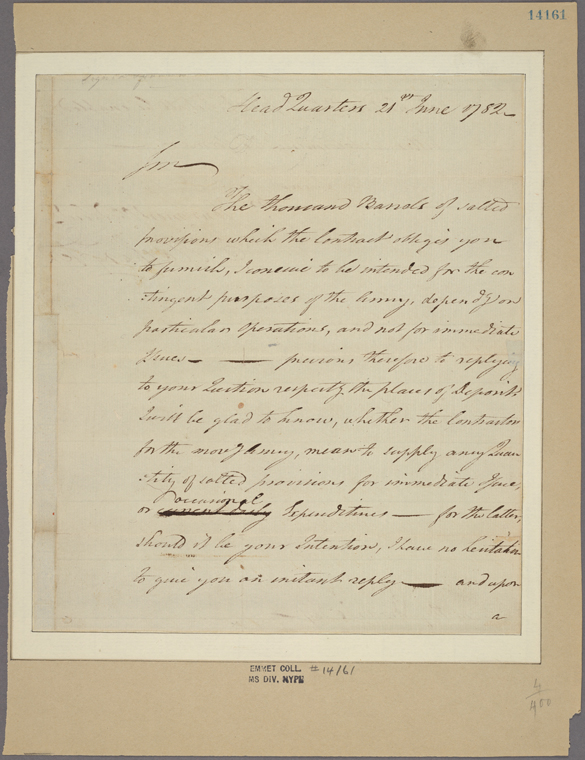 14161
Head Quarters 21st June 1782
Sir
The thousand Barrels of salted
provisions which the Contract obliges you
to furnish, I conceive to be intended for the con
tingent purposes of the Army, dependg on
particular Operations, and not for immediate
Issues — — previous therefore to replying
to your Question respectg the places of Deposit
I will be glad to know, whether the Contractors
for the movg Army, mean to supply any Quan
tity of salted provisions for immediate Issue,
occasional
or current daily Expenditures — for the latter,
should it be your Intention, I have no hesitation
to give you an instant reply — and upon
a
EMMET COLL. #14161
MS DIV. NYPL
4
450